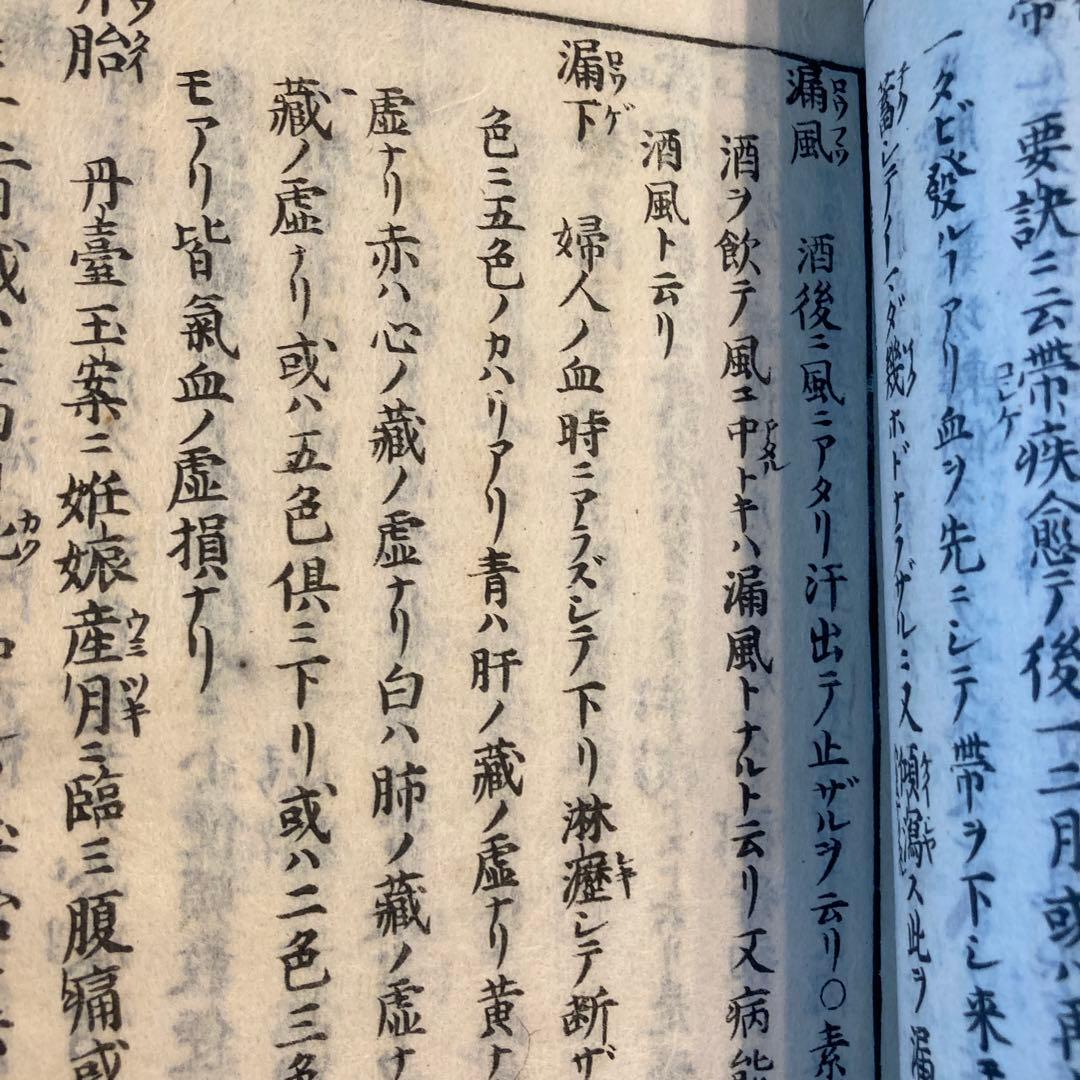 要訣ニ云帯疾愈テ後一二月或ハ再
一タビ發ルヿアリ血ヲ先ニシテ帯ヲ下シ来
蓄シテイマダ幾ホドナラザルニ又傾瀉ス此ヲ漏
漏風 酒後ニ風ニアタリ汗出テ止ザルヲ云リ○素
酒ヲ飲テ風ニ中トキハ漏風トナルト云リ又病能
酒風ト云リ
漏下 婦人ノ血時ニアラズシテ下リ淋瀝シテ断ザ
色ニ五色ノカハリアリ青ハ肝ノ藏ノ虚ナリ黄ナ
虚ナリ赤ハ心ノ藏ノ虚ナリ白ハ肺ノ藏ノ虚ナ
藏ノ虚ナリ或ハ五色倶ニ下リ或ハ二色三色
モアリ皆氣血ノ虚損ナリ
胎 丹臺玉案ニ姙娠産月ニ臨ミ腹痛或